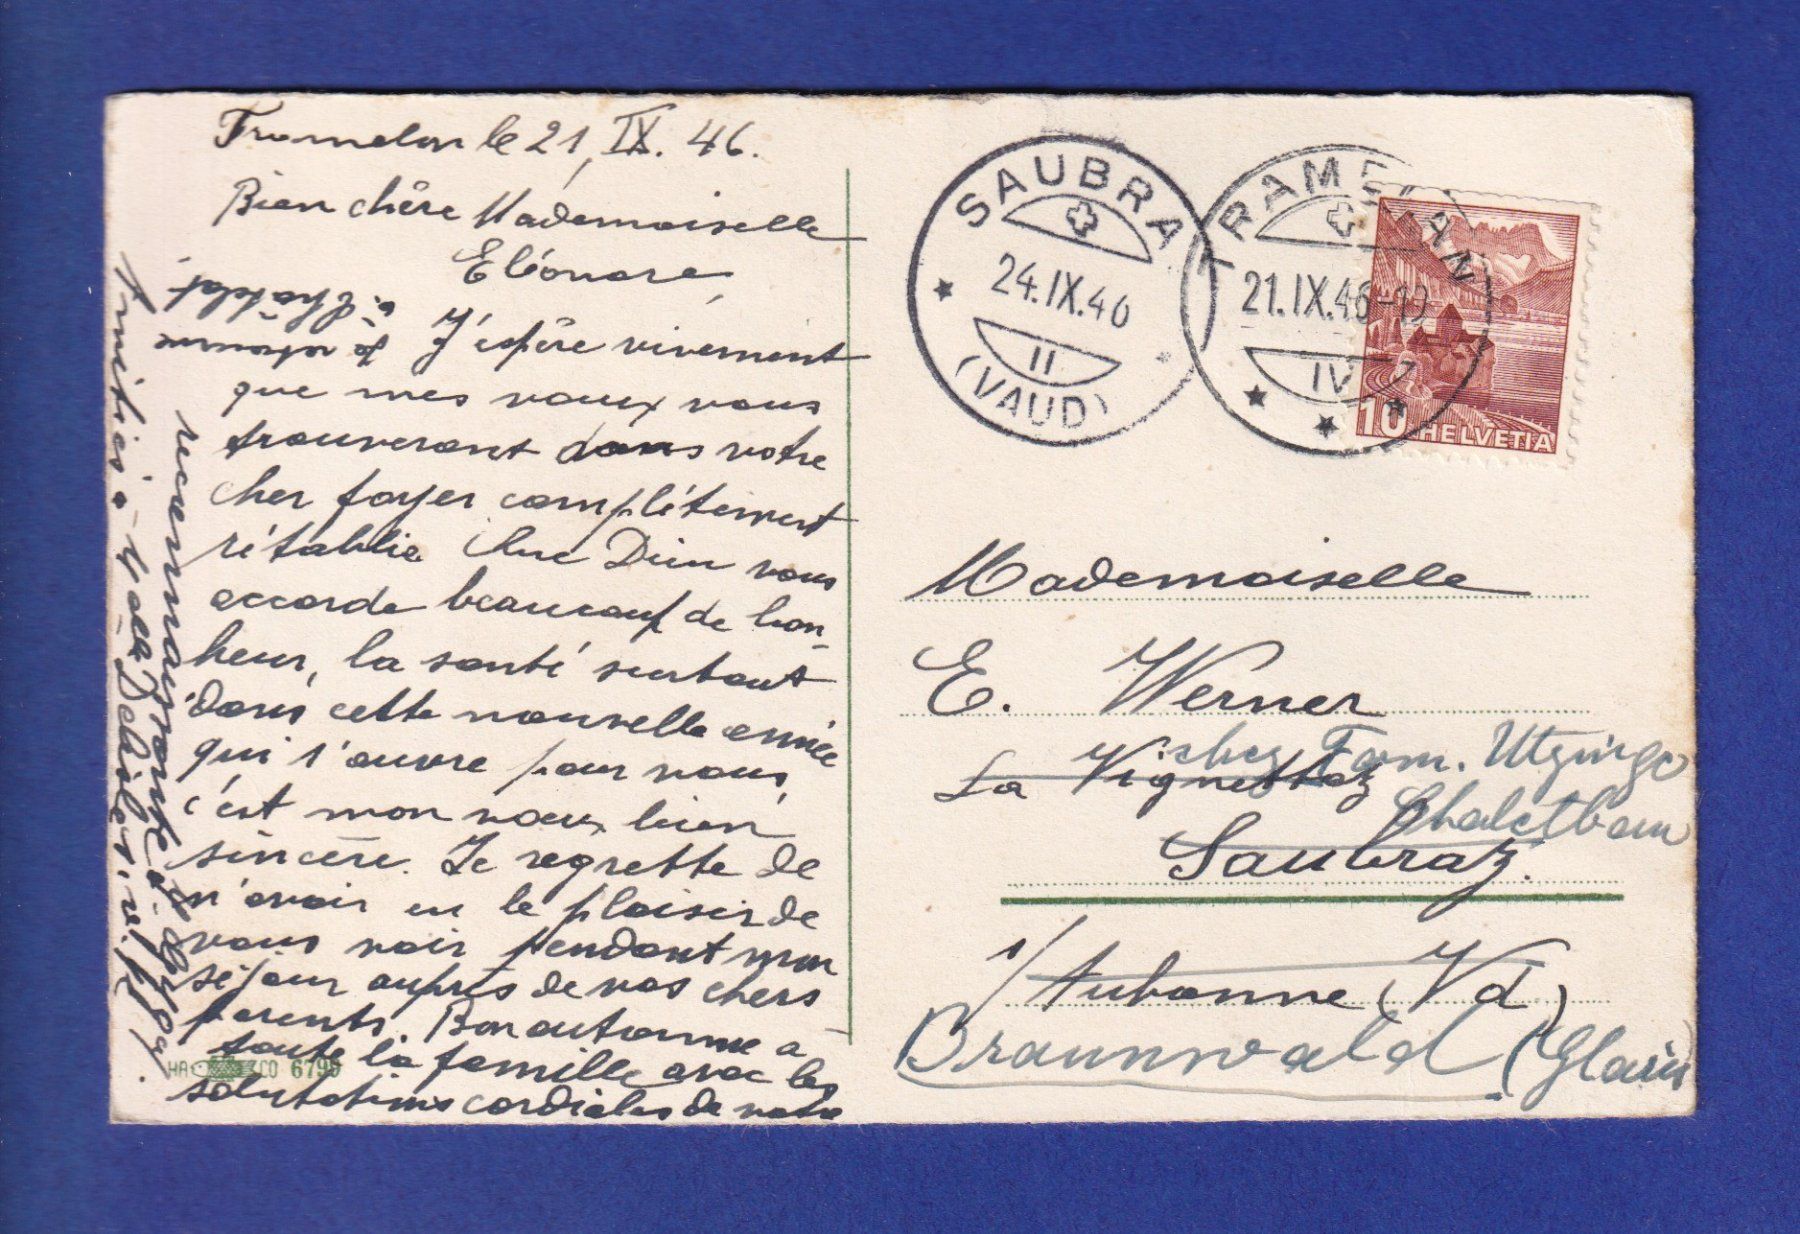 Tramelan le 21, IX. 46.
Bien chère Mademoiselle
Eléonore,
J'espère vivement
que mes vœux vous
trouveront dans votre
cher foyer complètement
rétablie. Que Dieu vous
accorde beaucoup de bon-
heur, la santé surtout
dans cette nouvelle année
qui s'ouvre pour vous,
c'est mon vœux bien
sincère. Je regrette de
n'avoir eu le plaisir de
vous voir pendant mon
séjour auprès de vos chers
parents. Bon automne à
toute la famille avec les
salutations cordiales de votre
reconnaissante
Amitiés à
v. pl.
je retourne
à Châtelat.
HA CO 679
SAUBRA
24.IX.46
II
(VAUD)
TRAMELAN
21.IX.46-19
IV
10 HELVETIA
Mademoiselle
E. Werner
chez Fam. Utzinger
La Vignettaz
Chalet
Saubraz.
s/ Aubonne (Vd)
Braunwald (Glaris